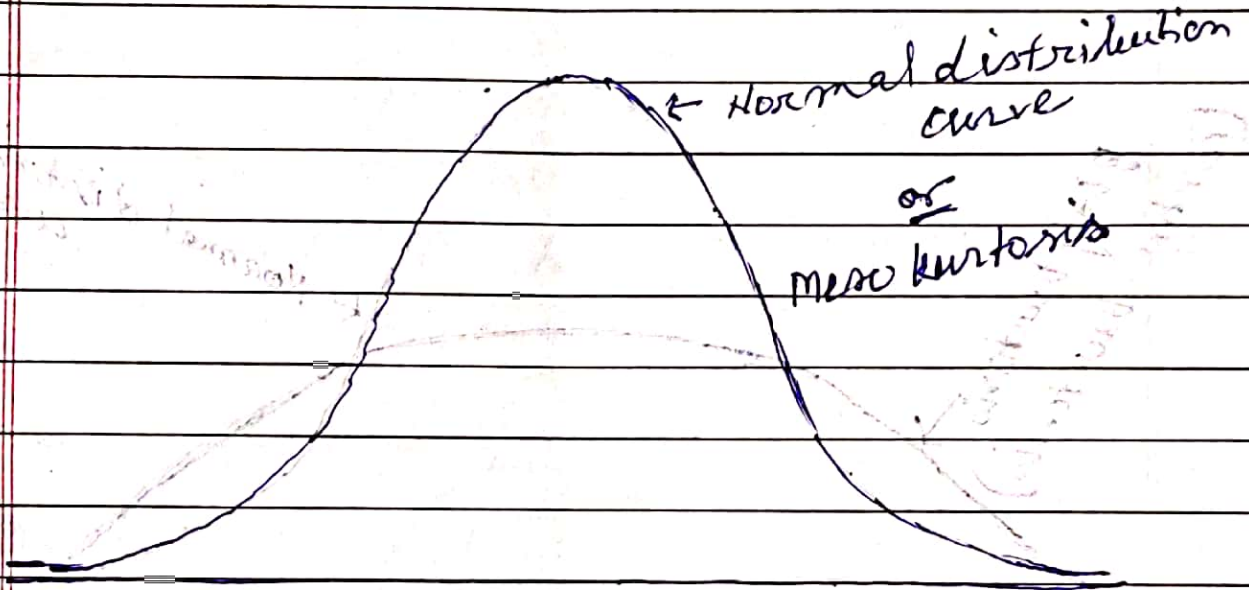 ← Normal distribution
curve
or
Meso kurtosis